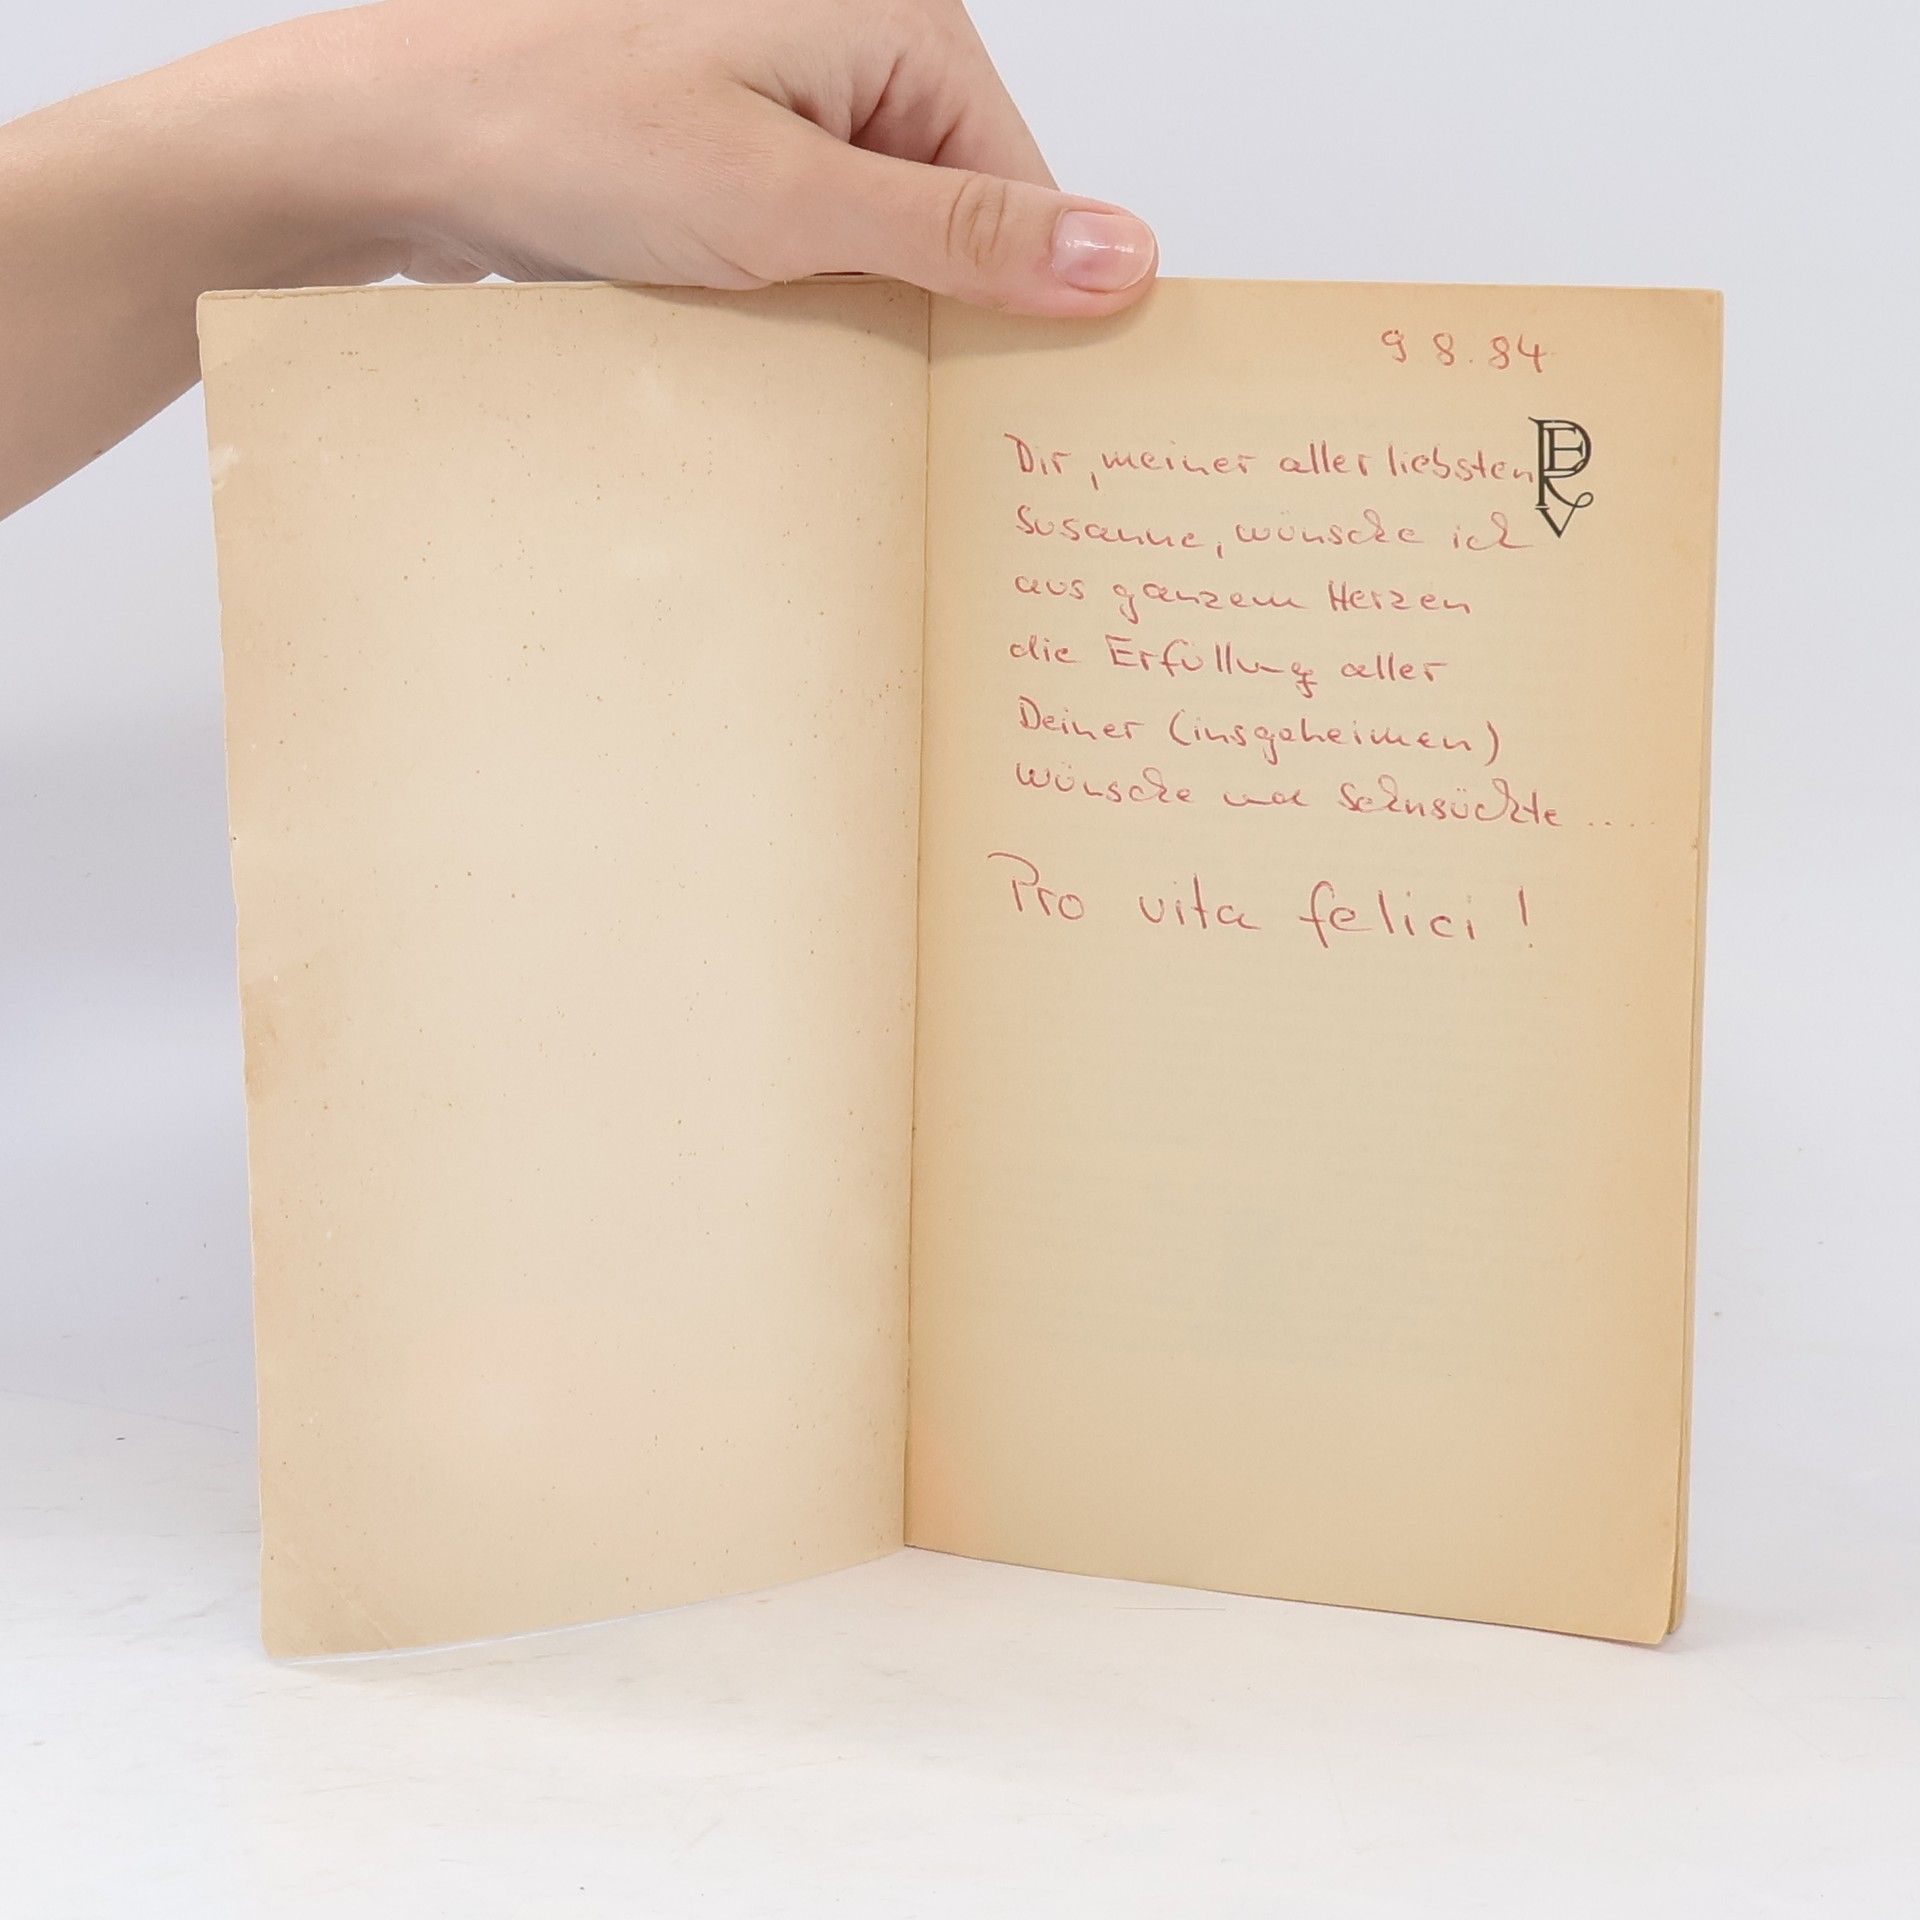 9 8.84
Dir, meiner allerliebsten
Susanne, wünsche ich
aus ganzem Herzen
die Erfüllung aller
Deiner (insgeheimen)
Wünsche und Sehnsüchte ....
Pro vita felici!